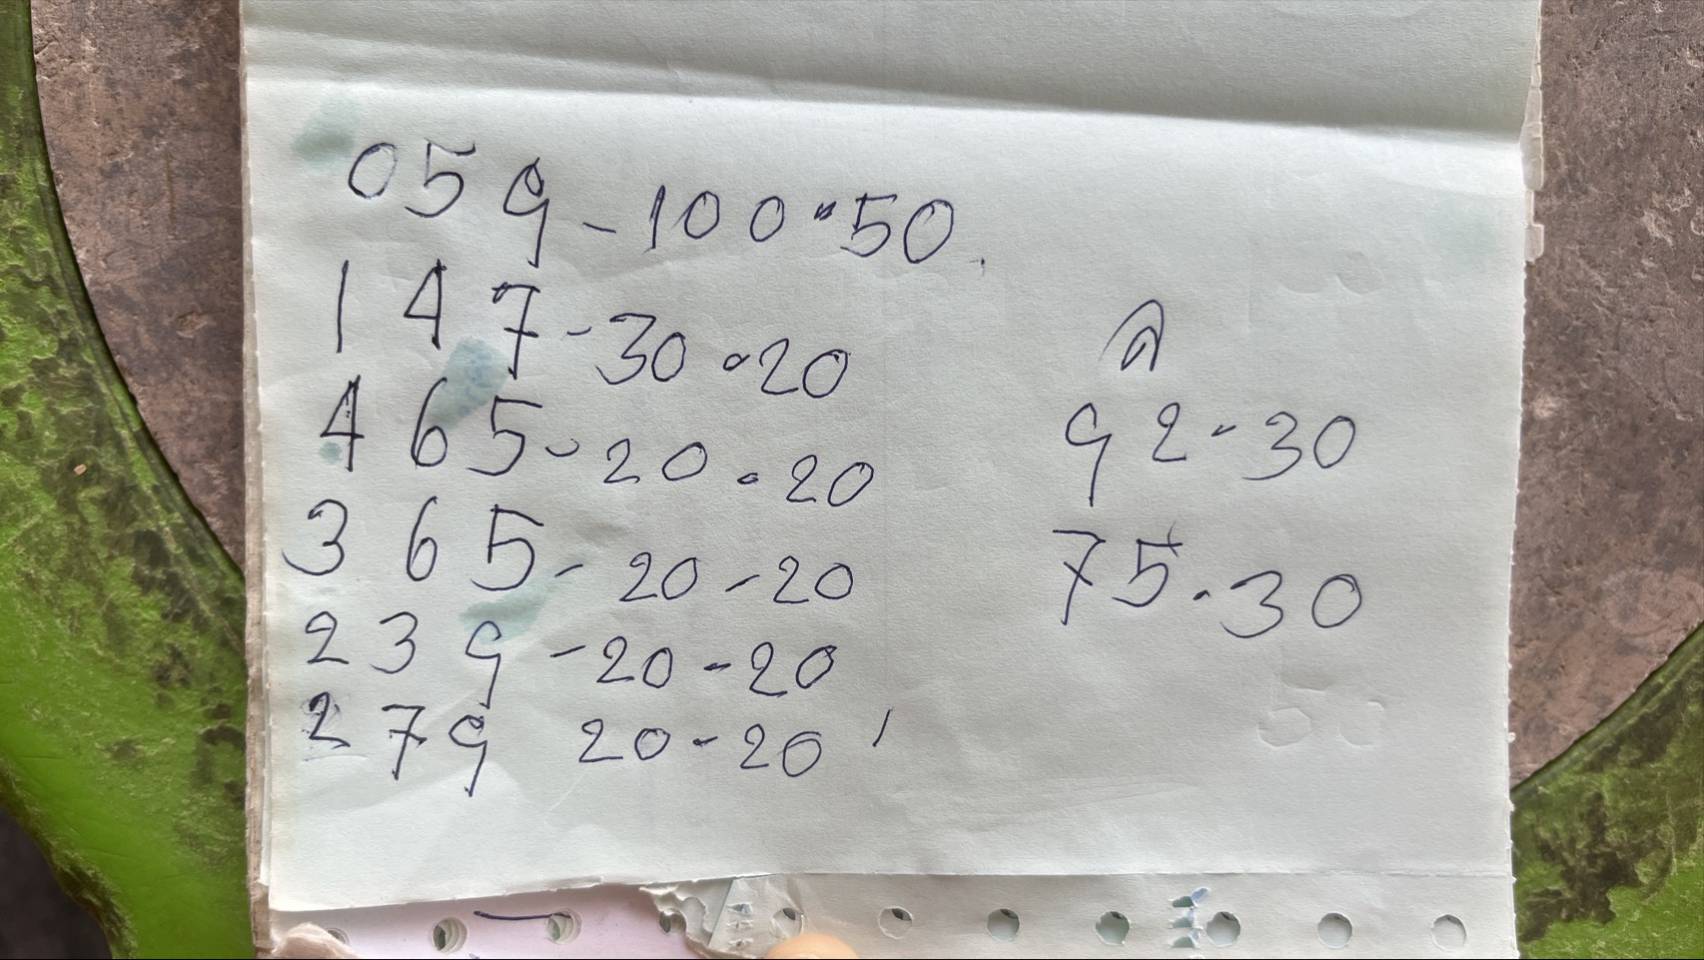 059-100-50
147-30-20
465-20-20
365-20-20
239-20-20
279 20-20
ล
92-30
75-30